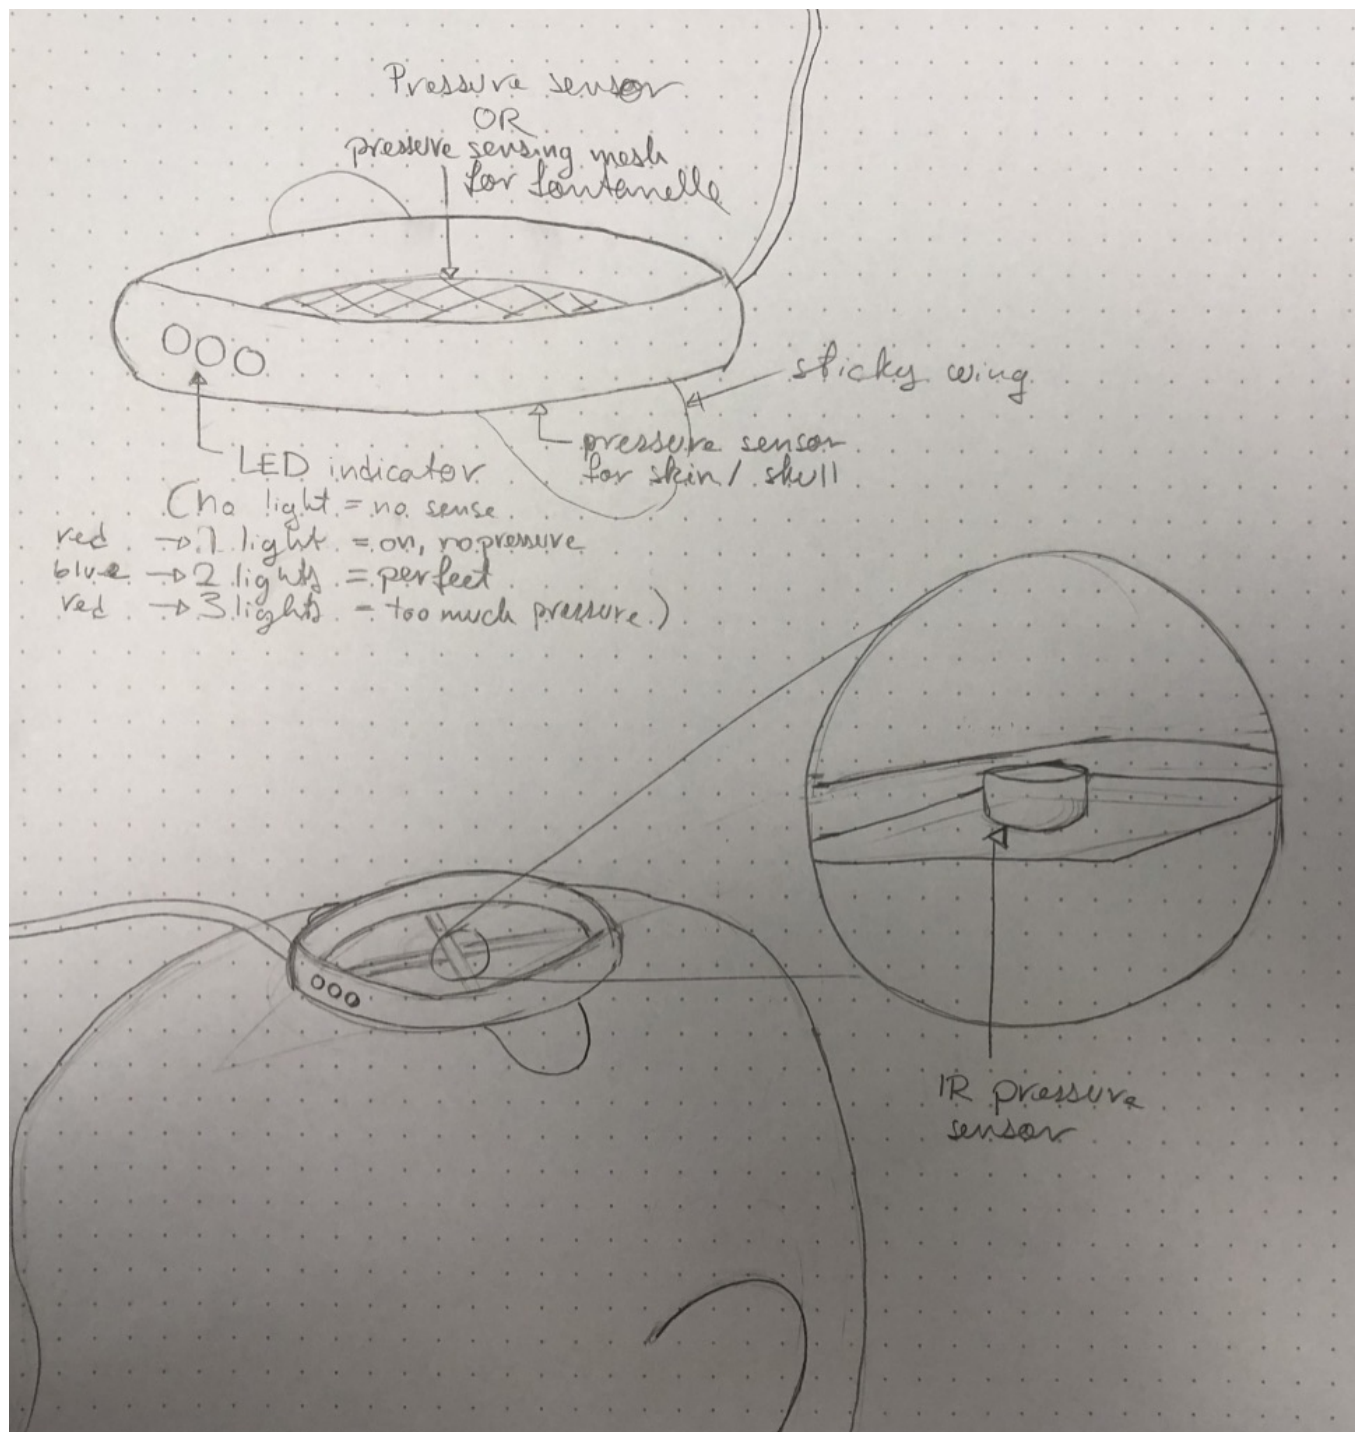 Pressure sensor
OR
pressure sensing mesh
for fontanelle
sticky wing
pressure sensor
for skin / skull
LED indicator
(no light = no sense
red → 1 light = on, no pressure
blue → 2 lights = perfect
red → 3 lights = too much pressure)
IR pressure
sensor